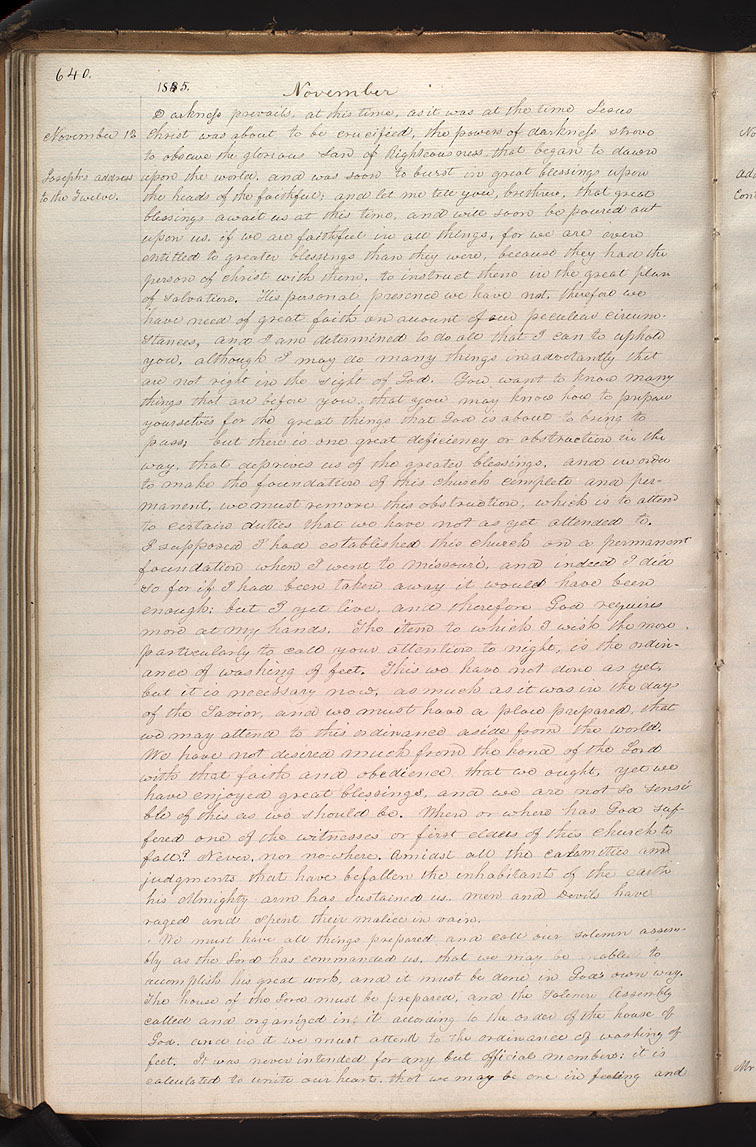 640.
1835. November
Darkness prevails, at this time, as it was at the time Jesus
November 12 Christ was about to be crucified, the powers of darkness strove
to obscure the glorious Sun of Righteousness that began to dawn
Joseph's address upon the world, and was soon to burst in great blessings upon
to the Twelve. the heads of the faithful, and let me tell you, brethren, that great
blessings await us at this time, and will soon be poured out
upon us, if we are faithful in all things, for we are even
entitled to greater blessings than they were, because they had the
person of Christ with them, to instruct them in the great plan
of salvation. His personal presence we have not, therefore we
have need of great faith on account of our peculiar circum-
stances, and I am determined to do all that I can to uphold
you, although I may do many things inadvertantly that
are not right in the sight of God. You want to know many
things that are before you, that you may know how to prepare
yourselves for the great things that God is about to bring to
pass; but there is one great deficiency or obstruction in the
way, that deprives us of the greater blessings, and in order
to make the foundation of this church complete and per-
manent, we must remove this obstruction, which is to attend
to certain duties that we have not as yet attended to.
I supposed I had established this church on a permanent
foundation when I went to Missouri, and indeed I did
so for if I had been taken away it would have been
enough; but I yet live, and therefore God requires
more at my hands. The item to which I wish the more
particularly to call your attention to night, is the ordin-
ance of washing of feet. This we have not done as yet,
but it is necessary now, as much as it was in the days
of the Savior, and we must have a place prepared, that
we may attend to this ordinance aside from the world.
We have not desired much from the hand of the Lord
with that faith and obedience that we ought, yet we
have enjoyed great blessings, and we are not so sensi
ble of this as we should be. When or where has God suf-
fered one of the witnesses or first elders of this church to
fall? Never, nor no where. Amidst all the calamities and
judgments that have befallen the inhabitants of the earth
his Almighty arm has sustained us, men and Devils have
raged and spent their malice in vain.
We must have all things prepared and call our solemn assem-
bly as the Lord has commanded us, that we may be able to
accomplish his great work, and it must be done in God's own way,
The house of the Lord must be prepared, and the solemn Assembly
called and organized in it according to the order of the house of
God, and in it we must attend to the ordinance of washing of
feet. It was never intended for any but official members; it is
calculated to unite our hearts, that we may be one in feeling and
No
Add
Con
Mr